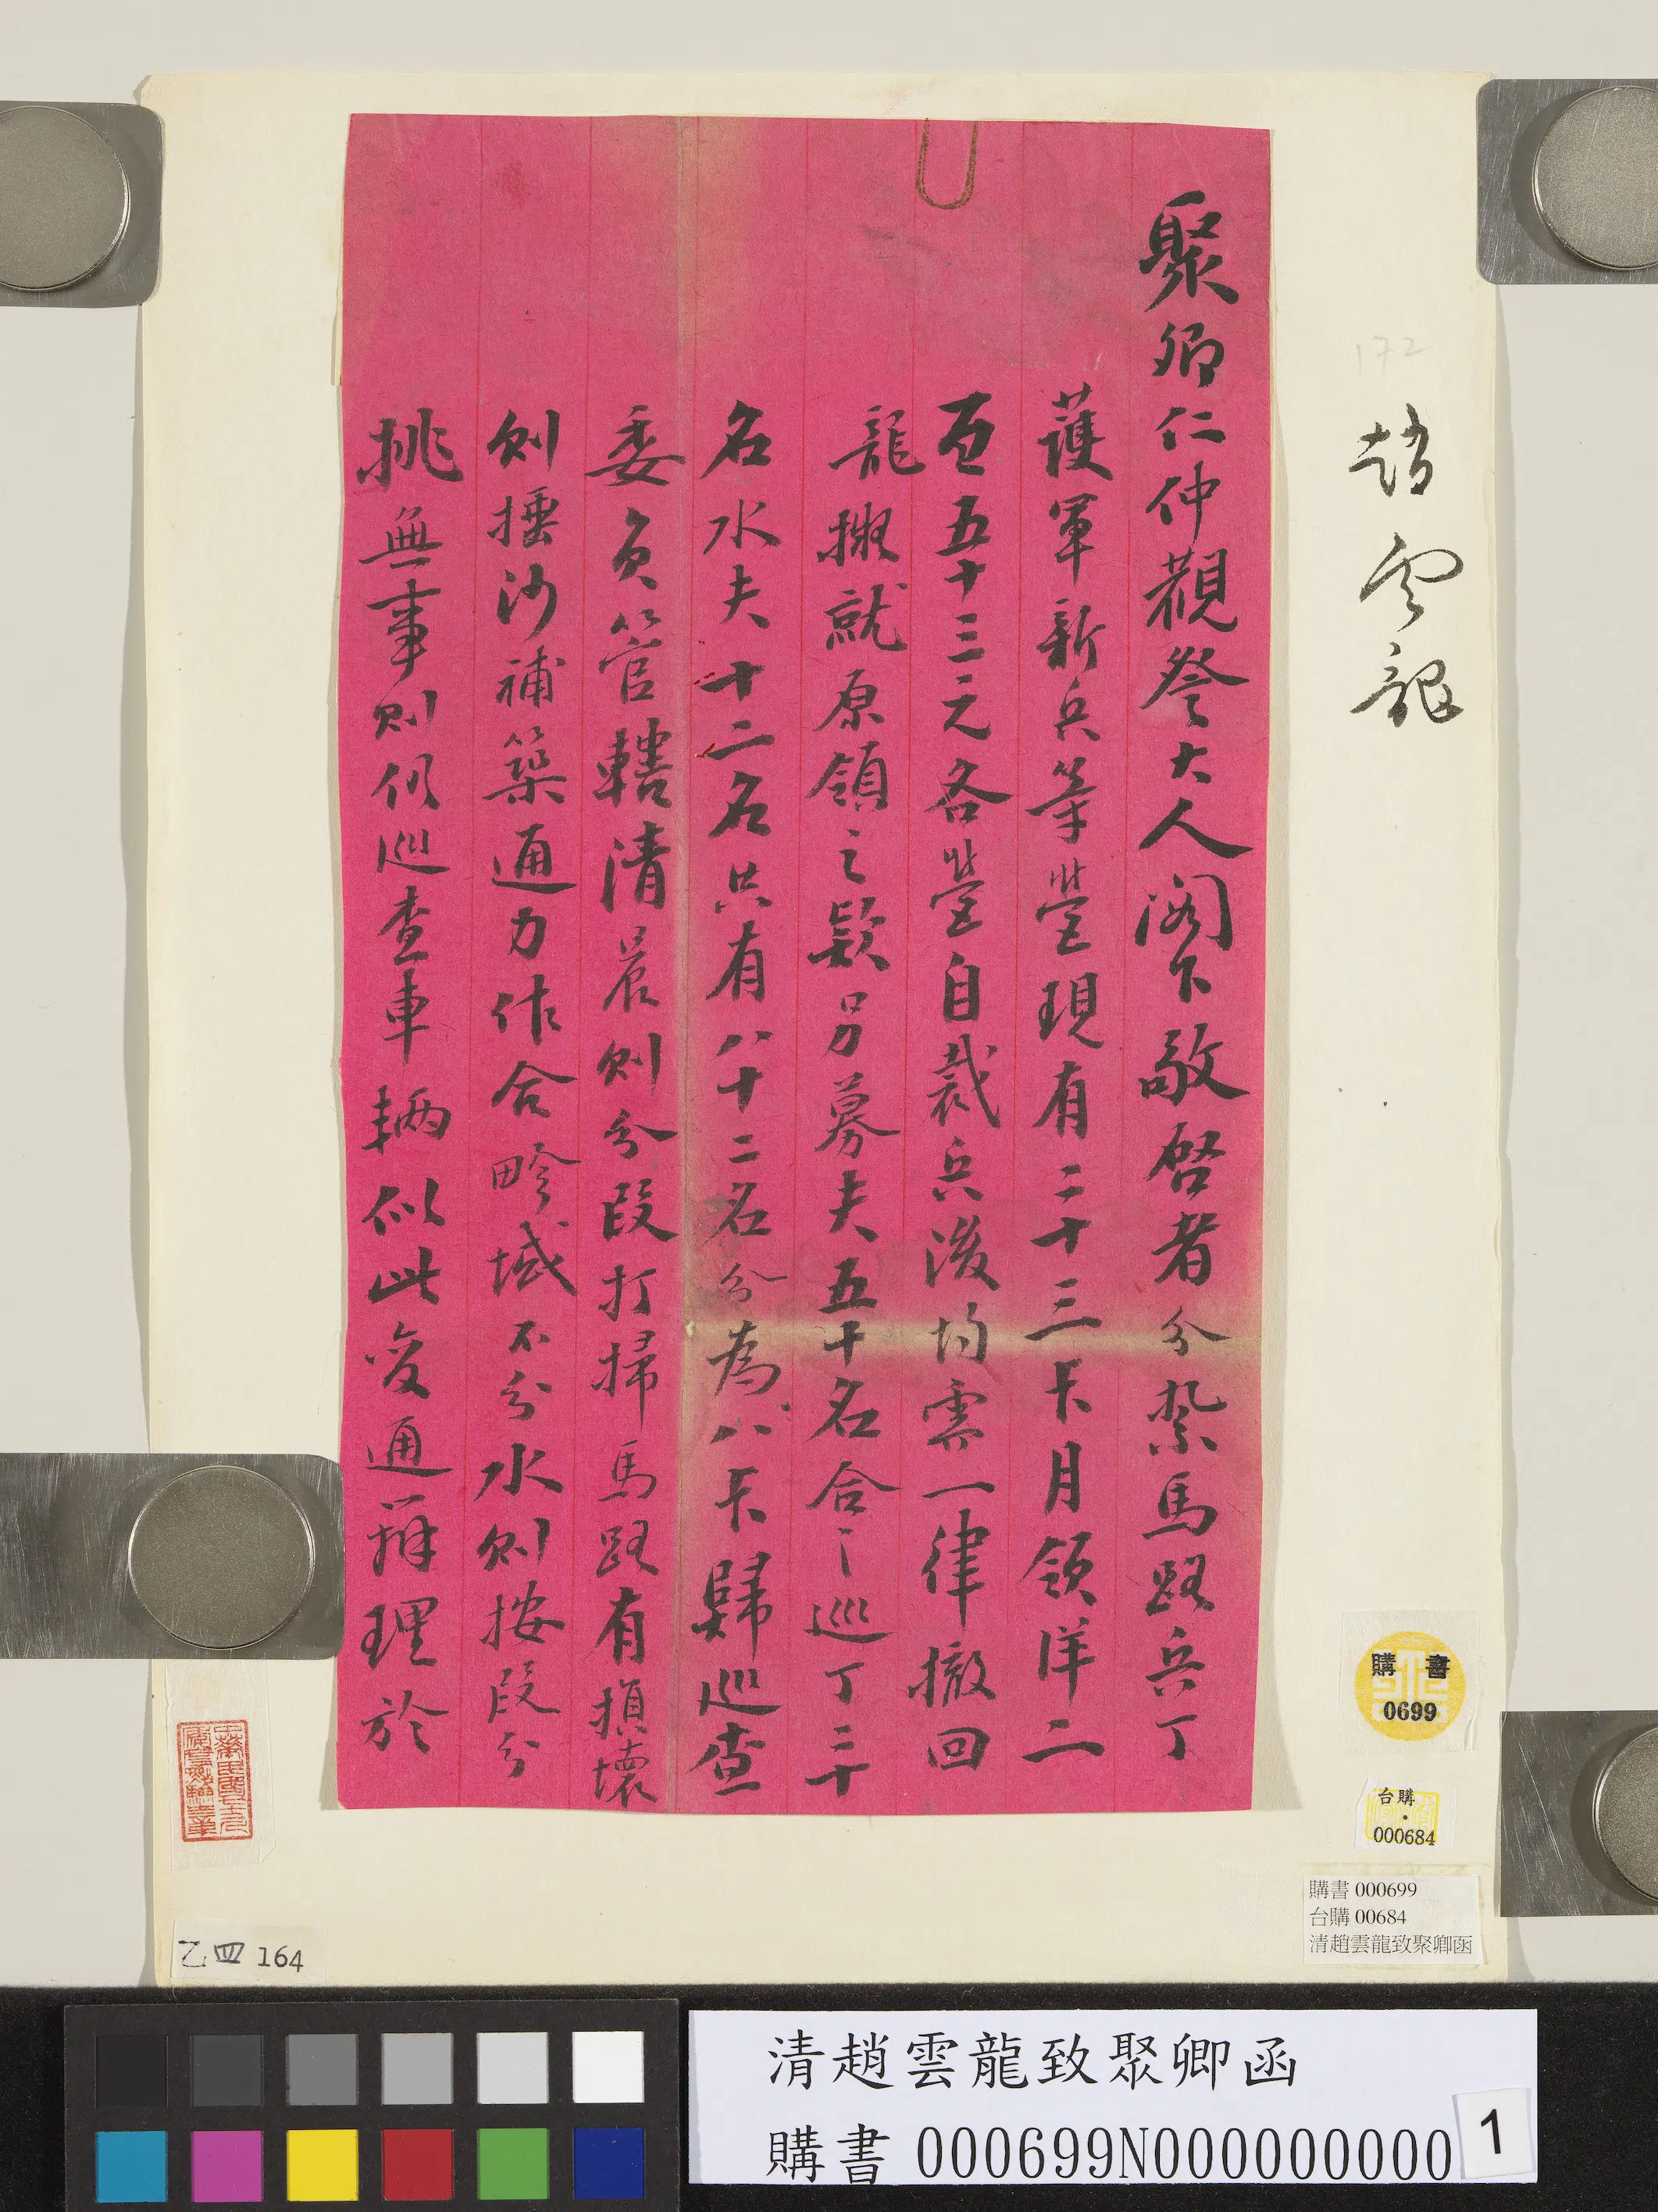 聚卿仁仲觀詧大人閣下敬啓者分紮馬路兵丁
護軍新兵等營現有二十三卡月領洋二
百五十三元各營自裁兵後均需一律撤回
龍擬就原領之款另募夫五十名合之巡丁二十
名水夫十二名共有八十二名分為八卡歸巡查
委員管轄清晨則分段打掃馬路有損壞
則挿沙補築通力作合畛域不分水則按段分
挑無事則仍巡查車輛似此變通辦理於
172
趙雲龍
購書
0699
台購
000684
購書 000699
台購 00684
清趙雲龍致聚卿函
乙四 164
清趙雲龍致聚卿函
購書 000699N000000000
1